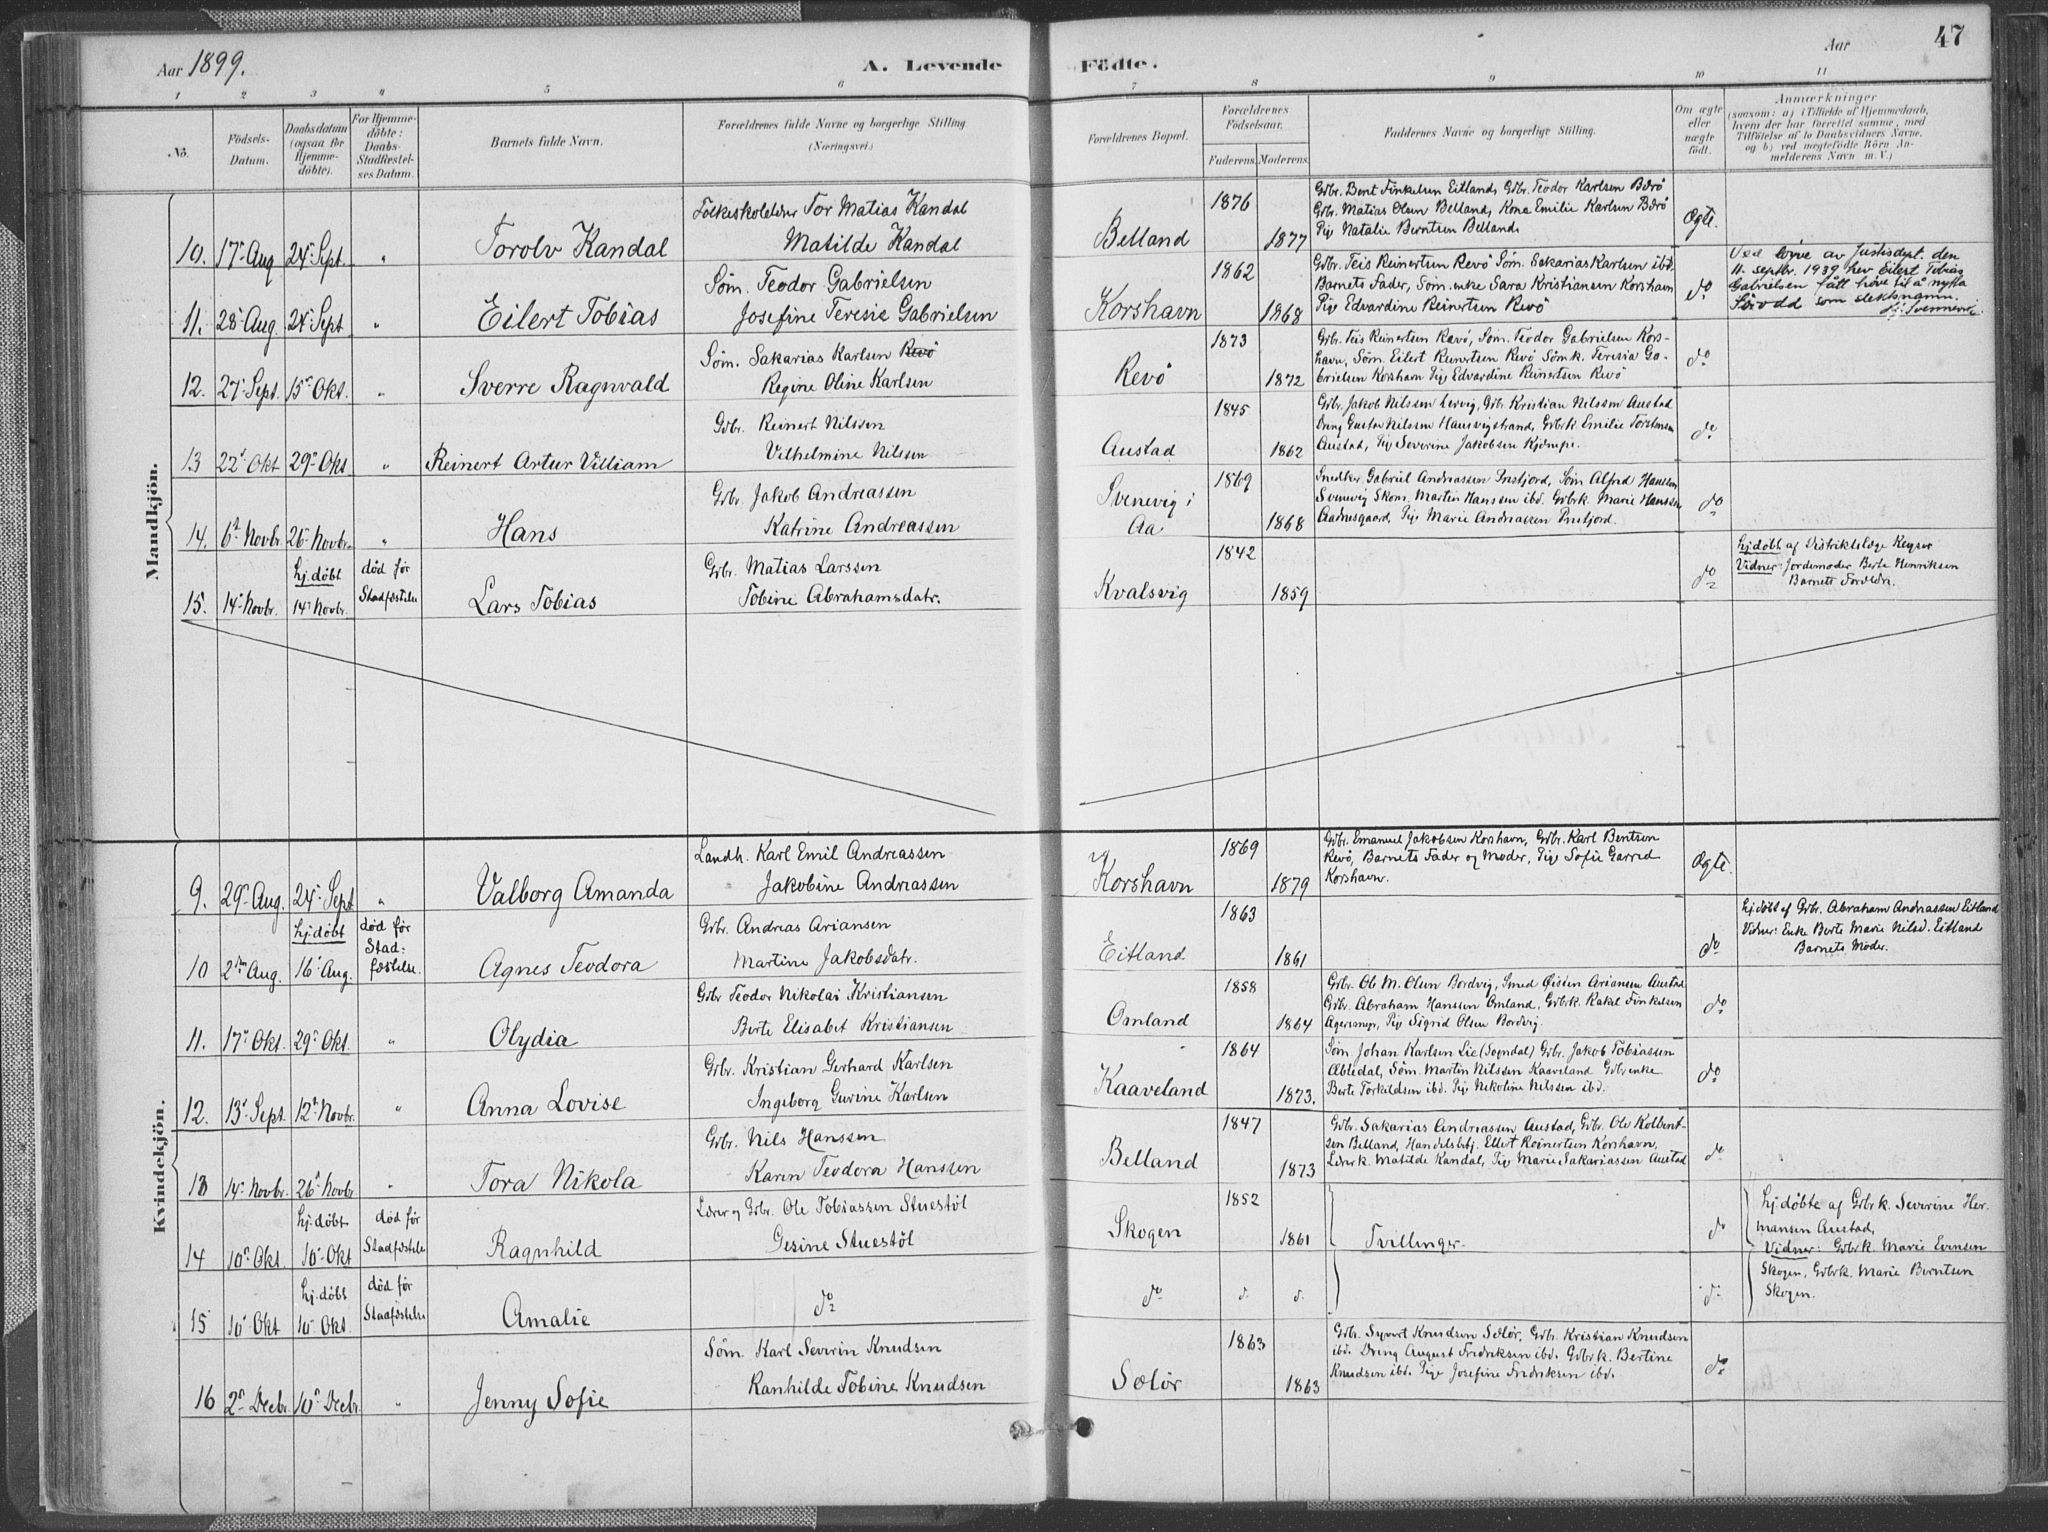 Aar 1899.
A. Levende
Födte.
Aar
47
1 2 3 4 5 6 7 8 9 10 11
No.
Födsels-
Datum.
Daabsdatum
(ogsaa for
Hjemme-
döbte).
For Hjemme-
döbte:
Daabs-
Stadfæstel-
ses Datum.
Barnets fulde Navn.
Forældrenes fulde Navne og borgerlige Stilling
(Næringsvei.)
Forældrenes Bopæl.
Forældrenes
Födselsaar.
Faderens. Moderens.
Faddernes Navne og borgerlige Stilling.
Om ægte
eller
uægte
födt.
Anmærkninger
(saasom: a) i Tilfælde af Hjemmedaab,
hvem der har forrettet samme, med
Tilföielse af to Daabsvidners Navne.
og b) ved uægtefödte Börn An-
melderens Navn m. V.)
Mandkjön.
10. 17. Aug 24. Sept. " Torolv Kandal
Folkeskolelærer Tor Matias Kandal
Matilde Kandal
Belland 1876 1877
Gdbr. Bent Finkelsen Eitland, Gdbr. Teodor Karlsen Bærø
Gdbr. Matias Olsen Belland, Kone Emilie Karlsen Bærø
Pige Natalie Berntsen Belland.
Ægte.
11. 28. Aug. 24. Sept " Eilert Tobias
Søm. Teodor Gabrielsen
Josefine Teresie Gabrielsen
Korshavn 1862 1868
Gdbr. Teis Reinertsen Revö Søm. Sakarias Karlsen ibd.
Barnets Fader, Søm. enke Sara Kristiansen Korshavn
Pige Edvardine Reinertsen Revö
do
Ved løyve av Justisdept. den
11. septbr. 1939 hev Eilert Tobias
Gabrielsen fått høve til å nytta
Sörvdd som slektsnamn.
12. 27. Sept. 15. Okt. " Sverre Ragnvald
Søm. Sakarias Karlsen Revö
Regine Oline Karlsen
Revö 1873 1872
Gdbr. Teis Reinertsen Revö, Søm. Teodor Gabrielsen Kors-
havn, Søm. Eilert Reinertsen Revö Sømk. Teresia Ga-
brielsen Korshavn Pige Edvardine Reinertsen Revö
do
13 22. Okt 29. Okt " Reinert Artur Villiam
Gdbr. Reinert Nilssen
Vilhelmine Nilssen
Austad 1845 1862
Gdbr. Jakob Nilssen Lervig, Gdbr. Kristian Nilssen Austad
Dreng Gustav Nilssen Hausvigstrand, Gdbrk Emilie Torstensen
Austad, Pige Severine Jakobsen Kjømpe.
do
14. 6. Novbr 26. Novbr. " Hans
Gdbr. Jakob Andreassen
Katrine Andreassen
Svenevig i
Aa 1869 1868
Snedker Gabriel Andreassen Prestjord, Søm Alfred Hanssen
Svenevig Skom. Martin Hanssen ibd. Gdbrk. Marie Hanssen
Aadnesgaard, Pige Marie Andreassen Prestjord.
do
15. 14. Novbr. hj.døbt
14. Novbr.
død før
Stadfæstelse
Lars Tobias
Gdbr. Matias Larssen
Tobine Abrahamsdatr.
Kvalsvig 1842 1859
do
hj.døbt af Distriktslæge Keyser
Vidner: Jordemoder Berte Henriksen
Barnets Forældre.
Kvindekjön.
9. 29. Aug. 24. Sept " Valborg Amanda
Landh. Karl Emil Andreassen
Jakobine Andreassen
Korshavn 1869 1879
Gdbr. Emanuel Jakobsen Korshavn, Gdbr. Karl Bentsen
Revö, Barnets Fader og Moder, Pige Sofie Garred
Korshavn.
Ægte.
10 2. Aug. hj.døbt
16. Aug.
død før
Stad-
fæstelse.
Agnes Teodora
Gdbr. Andreas Ariansen
Martine Jakobsdatr.
Eitland 1863 1861
do
hj.døbt af Gdbr. Abraham Andreassen Eitland
Vidner: Enke Berte Marie Nilsd. Eitland
Barnets Moder.
11. 17. Okt. 29. Okt. " Olydia
Gdbr Teodor Nikolai Kristiansen
Berte Elisabet Kristiansen
Omland 1858 1864
Gdbr. Ole M. Olsen Bordvig, Smed Øisten Ariansen Austad
Gdbr. Abraham Hanssen Omland, Gdbrk. Rakel Finkelsen
Agersmyr, Pige Sigrid Olsen Bordvig.
do
12. 13. Sept. 12. Novbr. " Anna Lovise
Gdbr. Kristian Gerhard Karlsen
Ingeborg Gurine Karlsen
Kaaveland 1864 1873.
Søm. Johan Karlsen Lie (Sogndal) Gdbr. Jakob Tobiassen
Abledal, Søm. Martin Nilssen Kaaveland Gdbrenke
Berte Torkildsen ibd. Pige Nikoline Nilssen ibd.
do
13 14. Novbr. 26. Novbr " Tora Nikola
Gdbr. Nils Hanssen
Karen Teodora Hanssen
Belland 1847 1873
Gdbr. Sakarias Andreassen Austad, Gdbr. Ole Kolbent-
sen Belland, Handelsbtj. Eilert Reinertsen Korshavn,
Lærerk. Matilde Kandal, Pige Marie Sakariassen Austad
do
14 10. Okt. hj.døbt
10. Okt
død før
Stadfæstelse
Ragnhild
Lærer og Gdbr. Ole Tobiassen Stuestöl
Gesine Stuestöl
Skogen 1852 1861
Tvillinger.
do
hj.døbte af Gdbrk. Severine Her-
mansen Austad,
Vidner: Gdbrk. Marie Evensen
Skogen, Gdbrk. Marie Berntsen
Skogen.
15 10. Okt hj.døbt
10. Okt.
død før
Staafæstelse
Amalie
do
do d. d. do
16 2. Decbr. 10. Decbr. " Jenny Sofie
Søm. Karl Severin Knudsen
Ranhilde Tobine Knudsen
Selør 1863 1863
Gdbr. Syvert Knudsen Selør, Gdbr. Kristian Knudsen
ibd. Dreng August Fredriksen ibd. Gdbrk. Bertine
Knudsen ibd. Pige Josefine Fredriksen ibd.
do